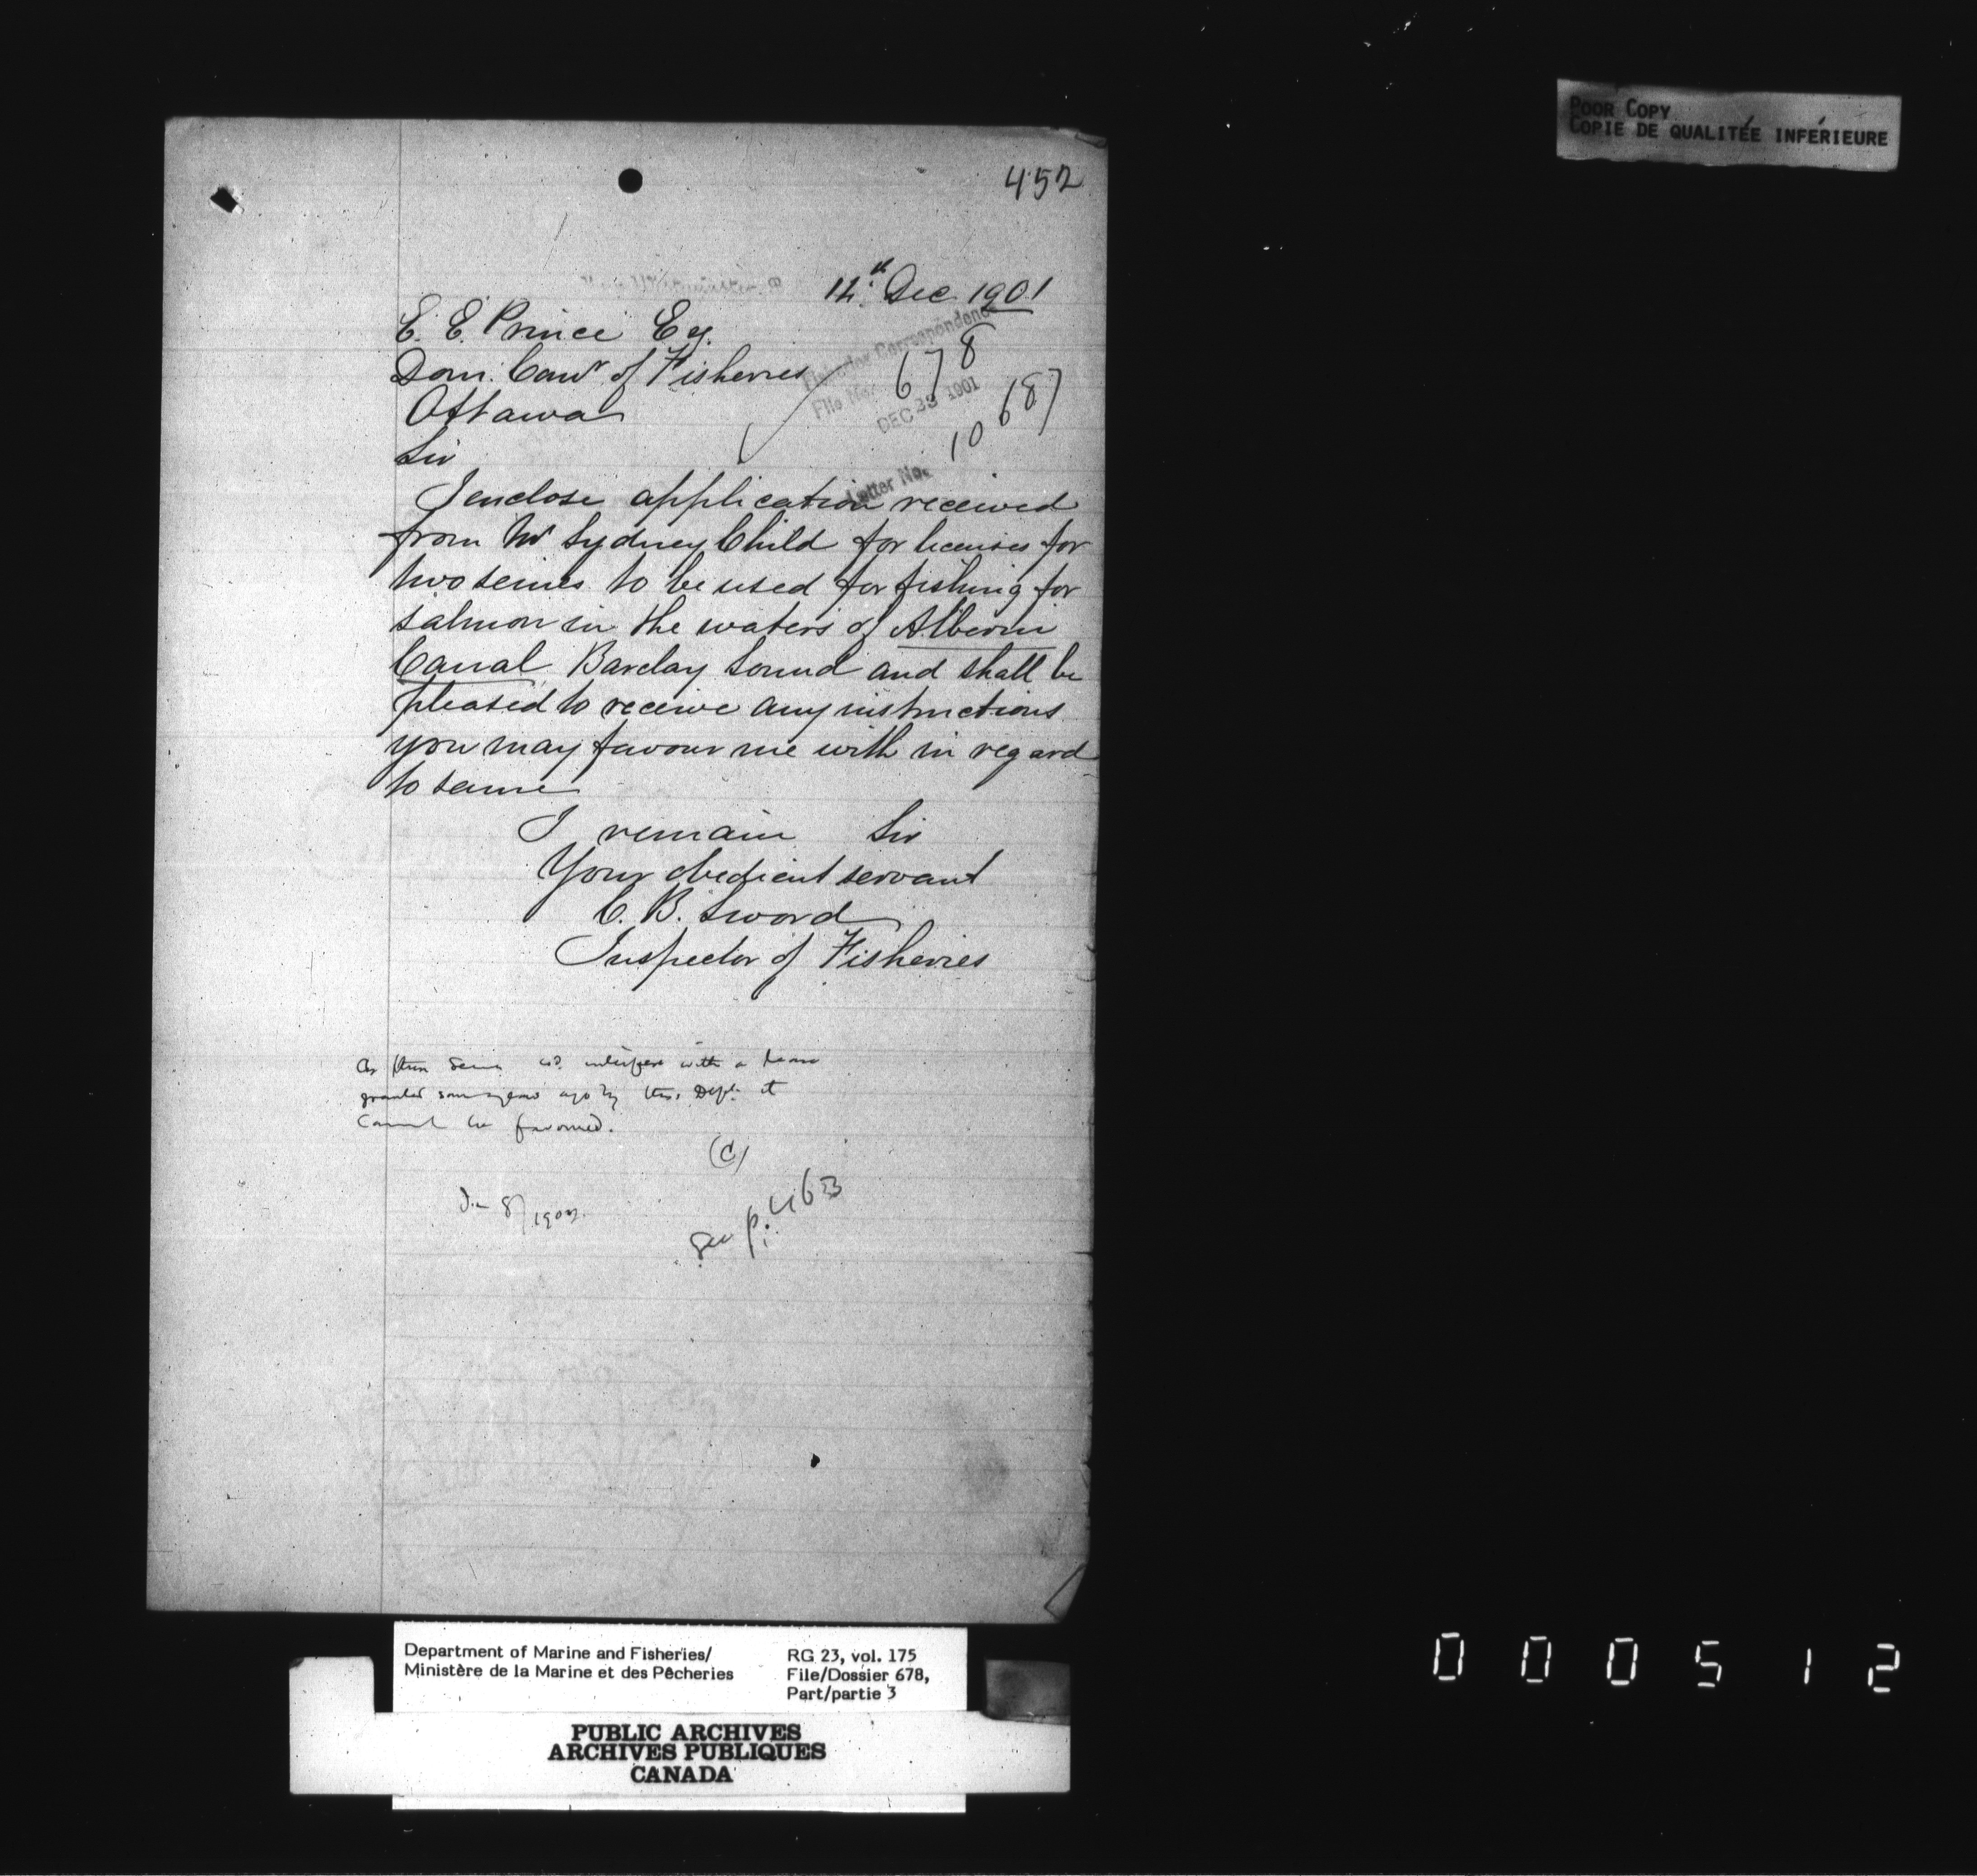 POOR COPY
COPIE DE QUALITÉE INFÉRIEURE
452
12th Dec 1901
E. E. Prince Esq.
Dom. Comr of Fisheries
Ottawa
Sir
Fisheries Correspondence
File No. 678
DEC 23 1901
10687
Letter No.
I enclose application received
from Mr Sydney Child for licenses for
two seines to be used for fishing for
salmon in the waters of Alberni
Canal Barclay Sound and shall be
pleased to receive any instructions
you may favour me with in regard
to same
I remain Sir
Your obedient servant
C. B. Sword
Inspector of Fisheries
As these seines wd. interfere with a lease
granted some years ago by this Dept. it
cannot be favoured.
(C)
Jan 8/1902.
See p. 463
Department of Marine and Fisheries/
Ministère de la Marine et des Pêcheries
RG 23, vol. 175
File/Dossier 678,
Part/partie 3
PUBLIC ARCHIVES
ARCHIVES PUBLIQUES
CANADA
000512